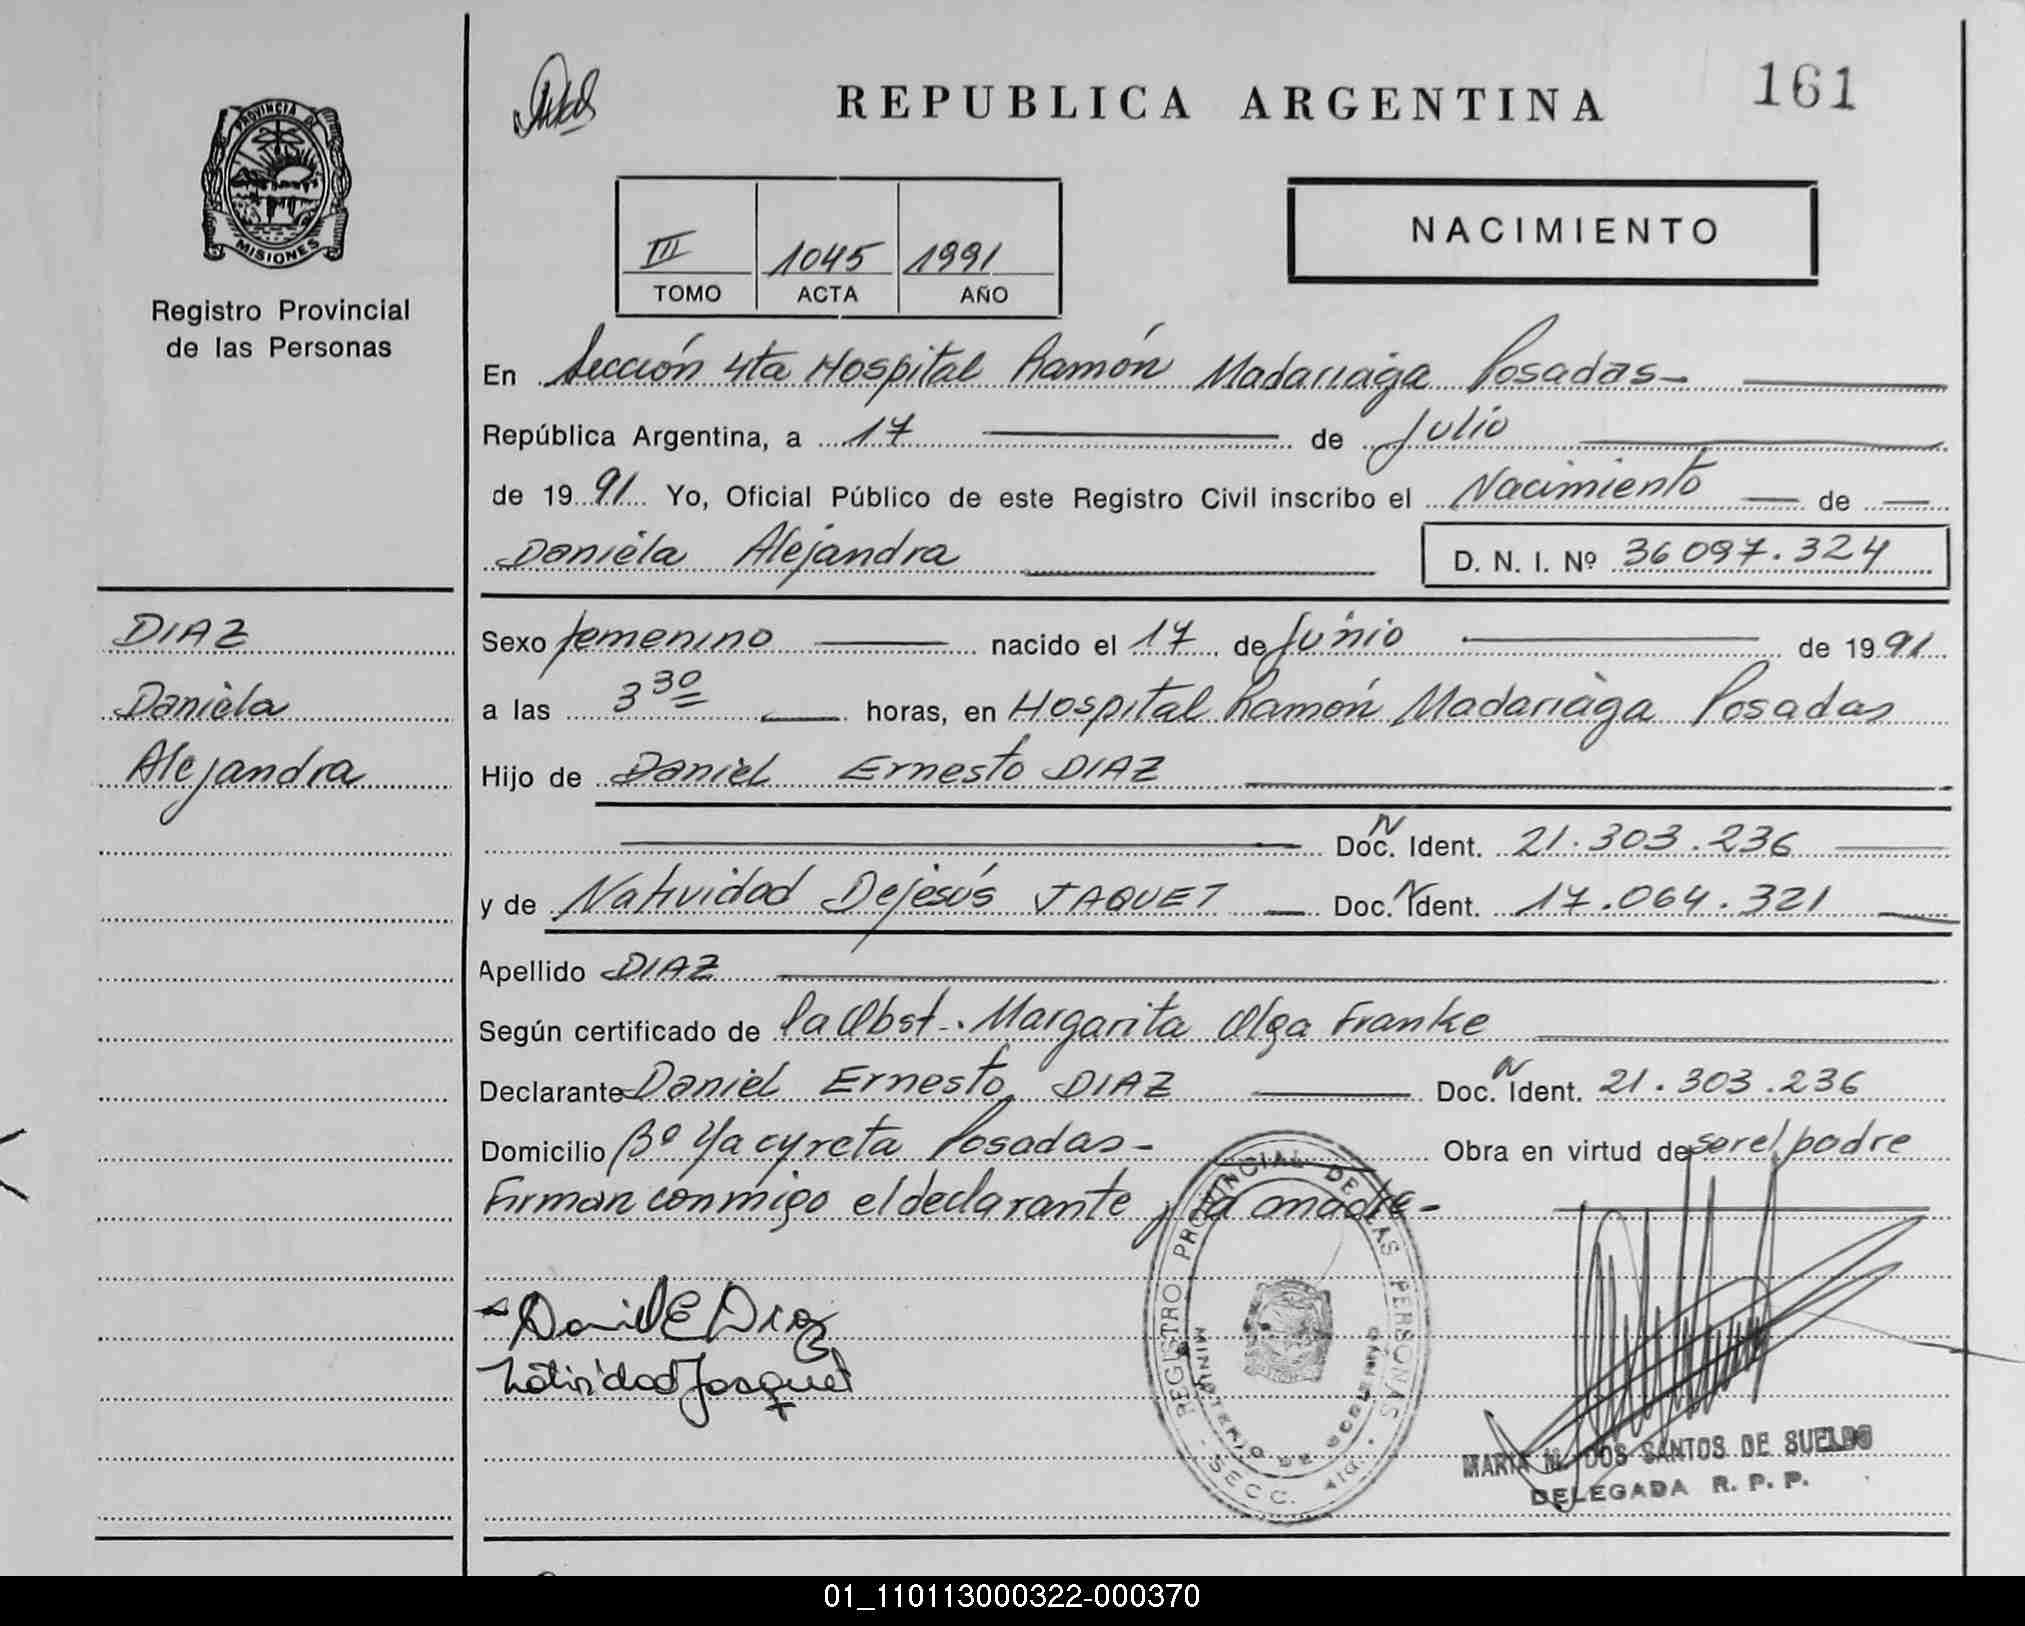 REPUBLICA ARGENTINA
161
PROVINCIA DE
MISIONES
Registro Provincial
de las Personas
III 1045 1991
TOMO ACTA AÑO
NACIMIENTO
En Sección 4ta Hospital Ramón Madariaga Posadas-
República Argentina, a 17 de Julio
de 1991 Yo, Oficial Público de este Registro Civil inscribo el Nacimiento de
Daniela Alejandra D. N. I. Nº 36 097.324
DIAZ
Daniela
Alejandra
Sexo femenino nacido el 17 de Junio de 1991
a las 3 30 horas, en Hospital Ramón Madariaga Posadas
Hijo de Daniel Ernesto DIAZ
Doc. N Ident. 21.303.236
y de Natividad Dejesús JAQUET Doc. N Ident. 17.064.321
Apellido DIAZ
Según certificado de la Obst. Margarita Olga Franke
Declarante Daniel Ernesto DIAZ Doc. N Ident. 21.303.236
Domicilio Bº Yacyreta Posadas- Obra en virtud de ser el padre
Firman conmigo el declarante y la madre-
Daniel E Diaz
Natividad Jaquet
REGISTRO PROVINCIAL DE LAS PERSONAS
MINISTERIO DE GOBIERNO
SECC. 4ta.
MARIA DOS SANTOS DE SUELDO
DELEGADA R. P. P.
01_110113000322-000370